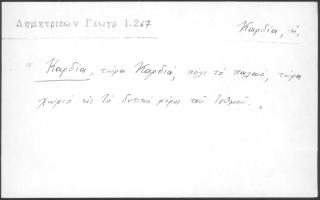 Δημητριεων Γεωγρ 1.267
Καρδία, ἡ,
" Καρδία, τώρα Καρδιά, πόλι τὸ παλαιό, τώρα
χωριό εἰς τὸ δυτικὸ μέρος τοῦ Ἰσθμοῦ. "